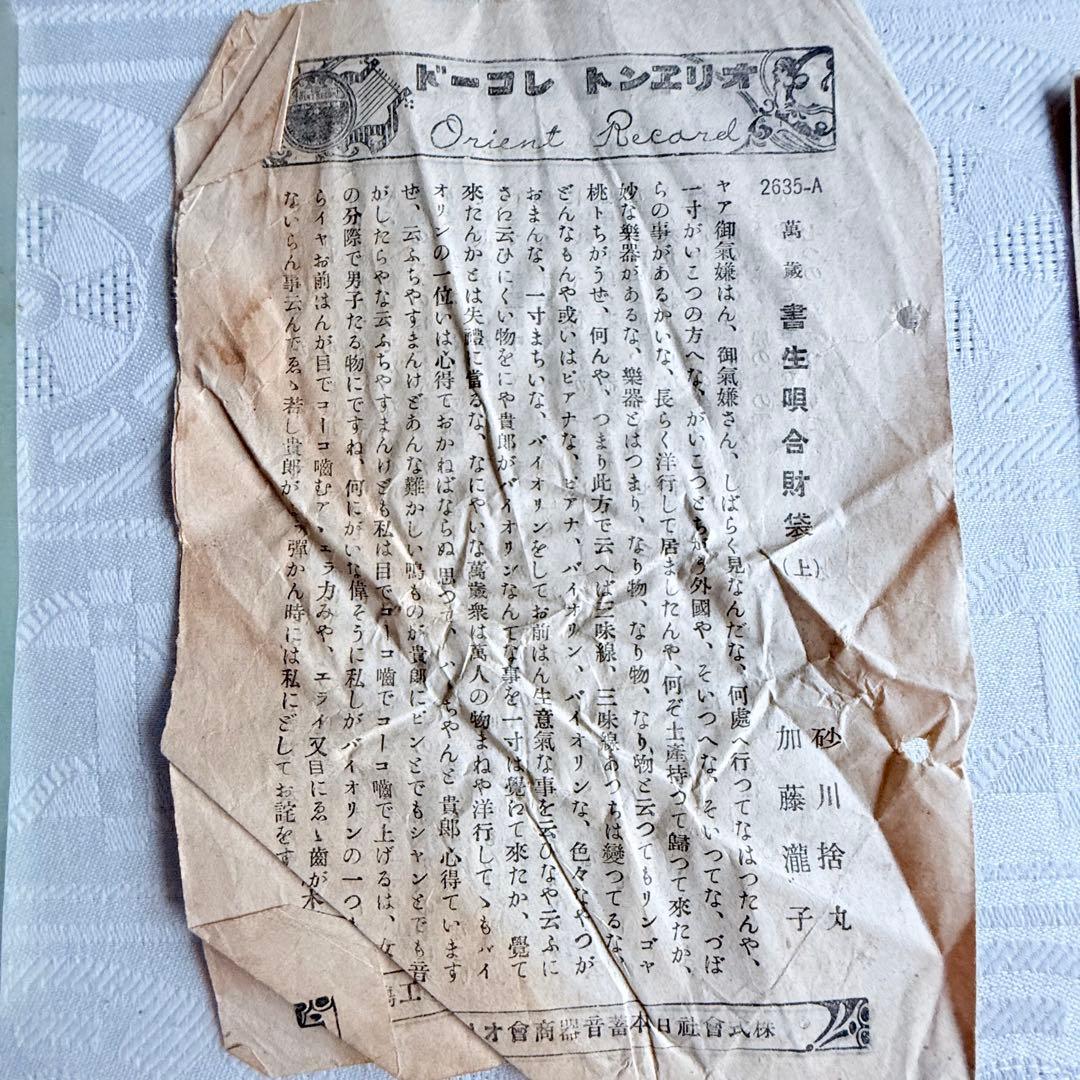 オリエント レコード
Orient Record
2635-A
萬歳 書生唄合財袋(上)
砂川捨丸
加藤瀧子
ヤア御氣嫌はん、御氣嫌さん、しばらく見なんだな、何處へ行つてなはつたんや、
一寸がいこつの方へな、がいこつとちがう外國や、そいつへな、そいつてな、づぼ
らの事があるかいな、長らく洋行して居ましたんや、何ぞ土產持つて歸つて來たか、
妙な樂器があるな、樂器とはつまり、なり物、なり物、なり物と云つてもリンゴャ
桃トちがうせ、何んや、つまり此方で云へば三味線、三味線のつちは變つてるな、
どんなもんや或いはピアナな、ピアナ、バイオリン、バイオリンな、色々なやつが
おまんな、一寸まちいな、バイオリンをしてお前はん生意氣な事を云ひなや云ふに
さへ云ひにくい物をにや貴郎がバイオリンなんてな事を一寸は覺えて來たか、覺て
來たんかとは失禮に當るな、なにやいな萬歳衆は萬人の物まねや洋行してゝもバイ
オリンの一位いは心得ておかねばならぬ思つて、ちやんと貴郎心得ています
せ、云ふちやすまんけどあんな難かしい鳴ものが貴郎にピンとでもシャンとでも音
がしたらやな云ふちやすまんけども私は目でコーコ嚙でコーコ嚙で上げるは、女
の分際で男子たる物にですね、何にがいな偉そうに私しがバイオリンの一つ
らイャお前はんが目でコーコ嚙むア、エラ力みや、エライ又目にゑゝ齒が
ないらん事云んでゑゝ若し貴郎が 彈かん時には私にどしてお詫をす
株式會社日本蓄音器商會オリ